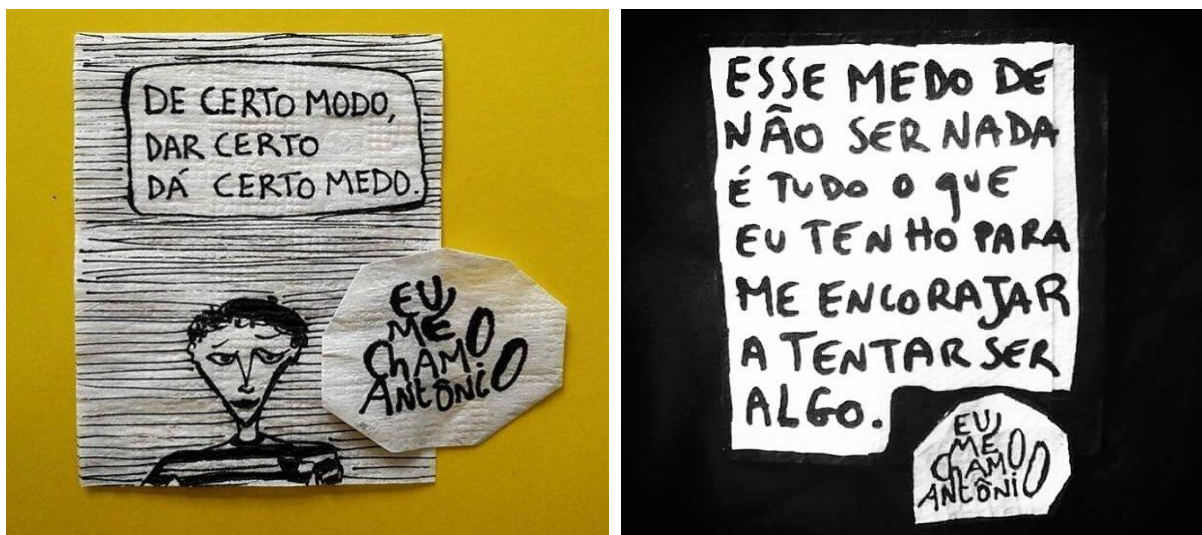 DE CERTO MODO,
DAR CERTO
DÁ CERTO MEDO.
EU
ME
CHAMO
ANTÔNIO
ESSE MEDO DE
NÃO SER NADA
É TUDO O QUE
EU TENHO PARA
ME ENCORAJAR
A TENTAR SER
ALGO.
EU
ME
CHAMO
ANTÔNIO